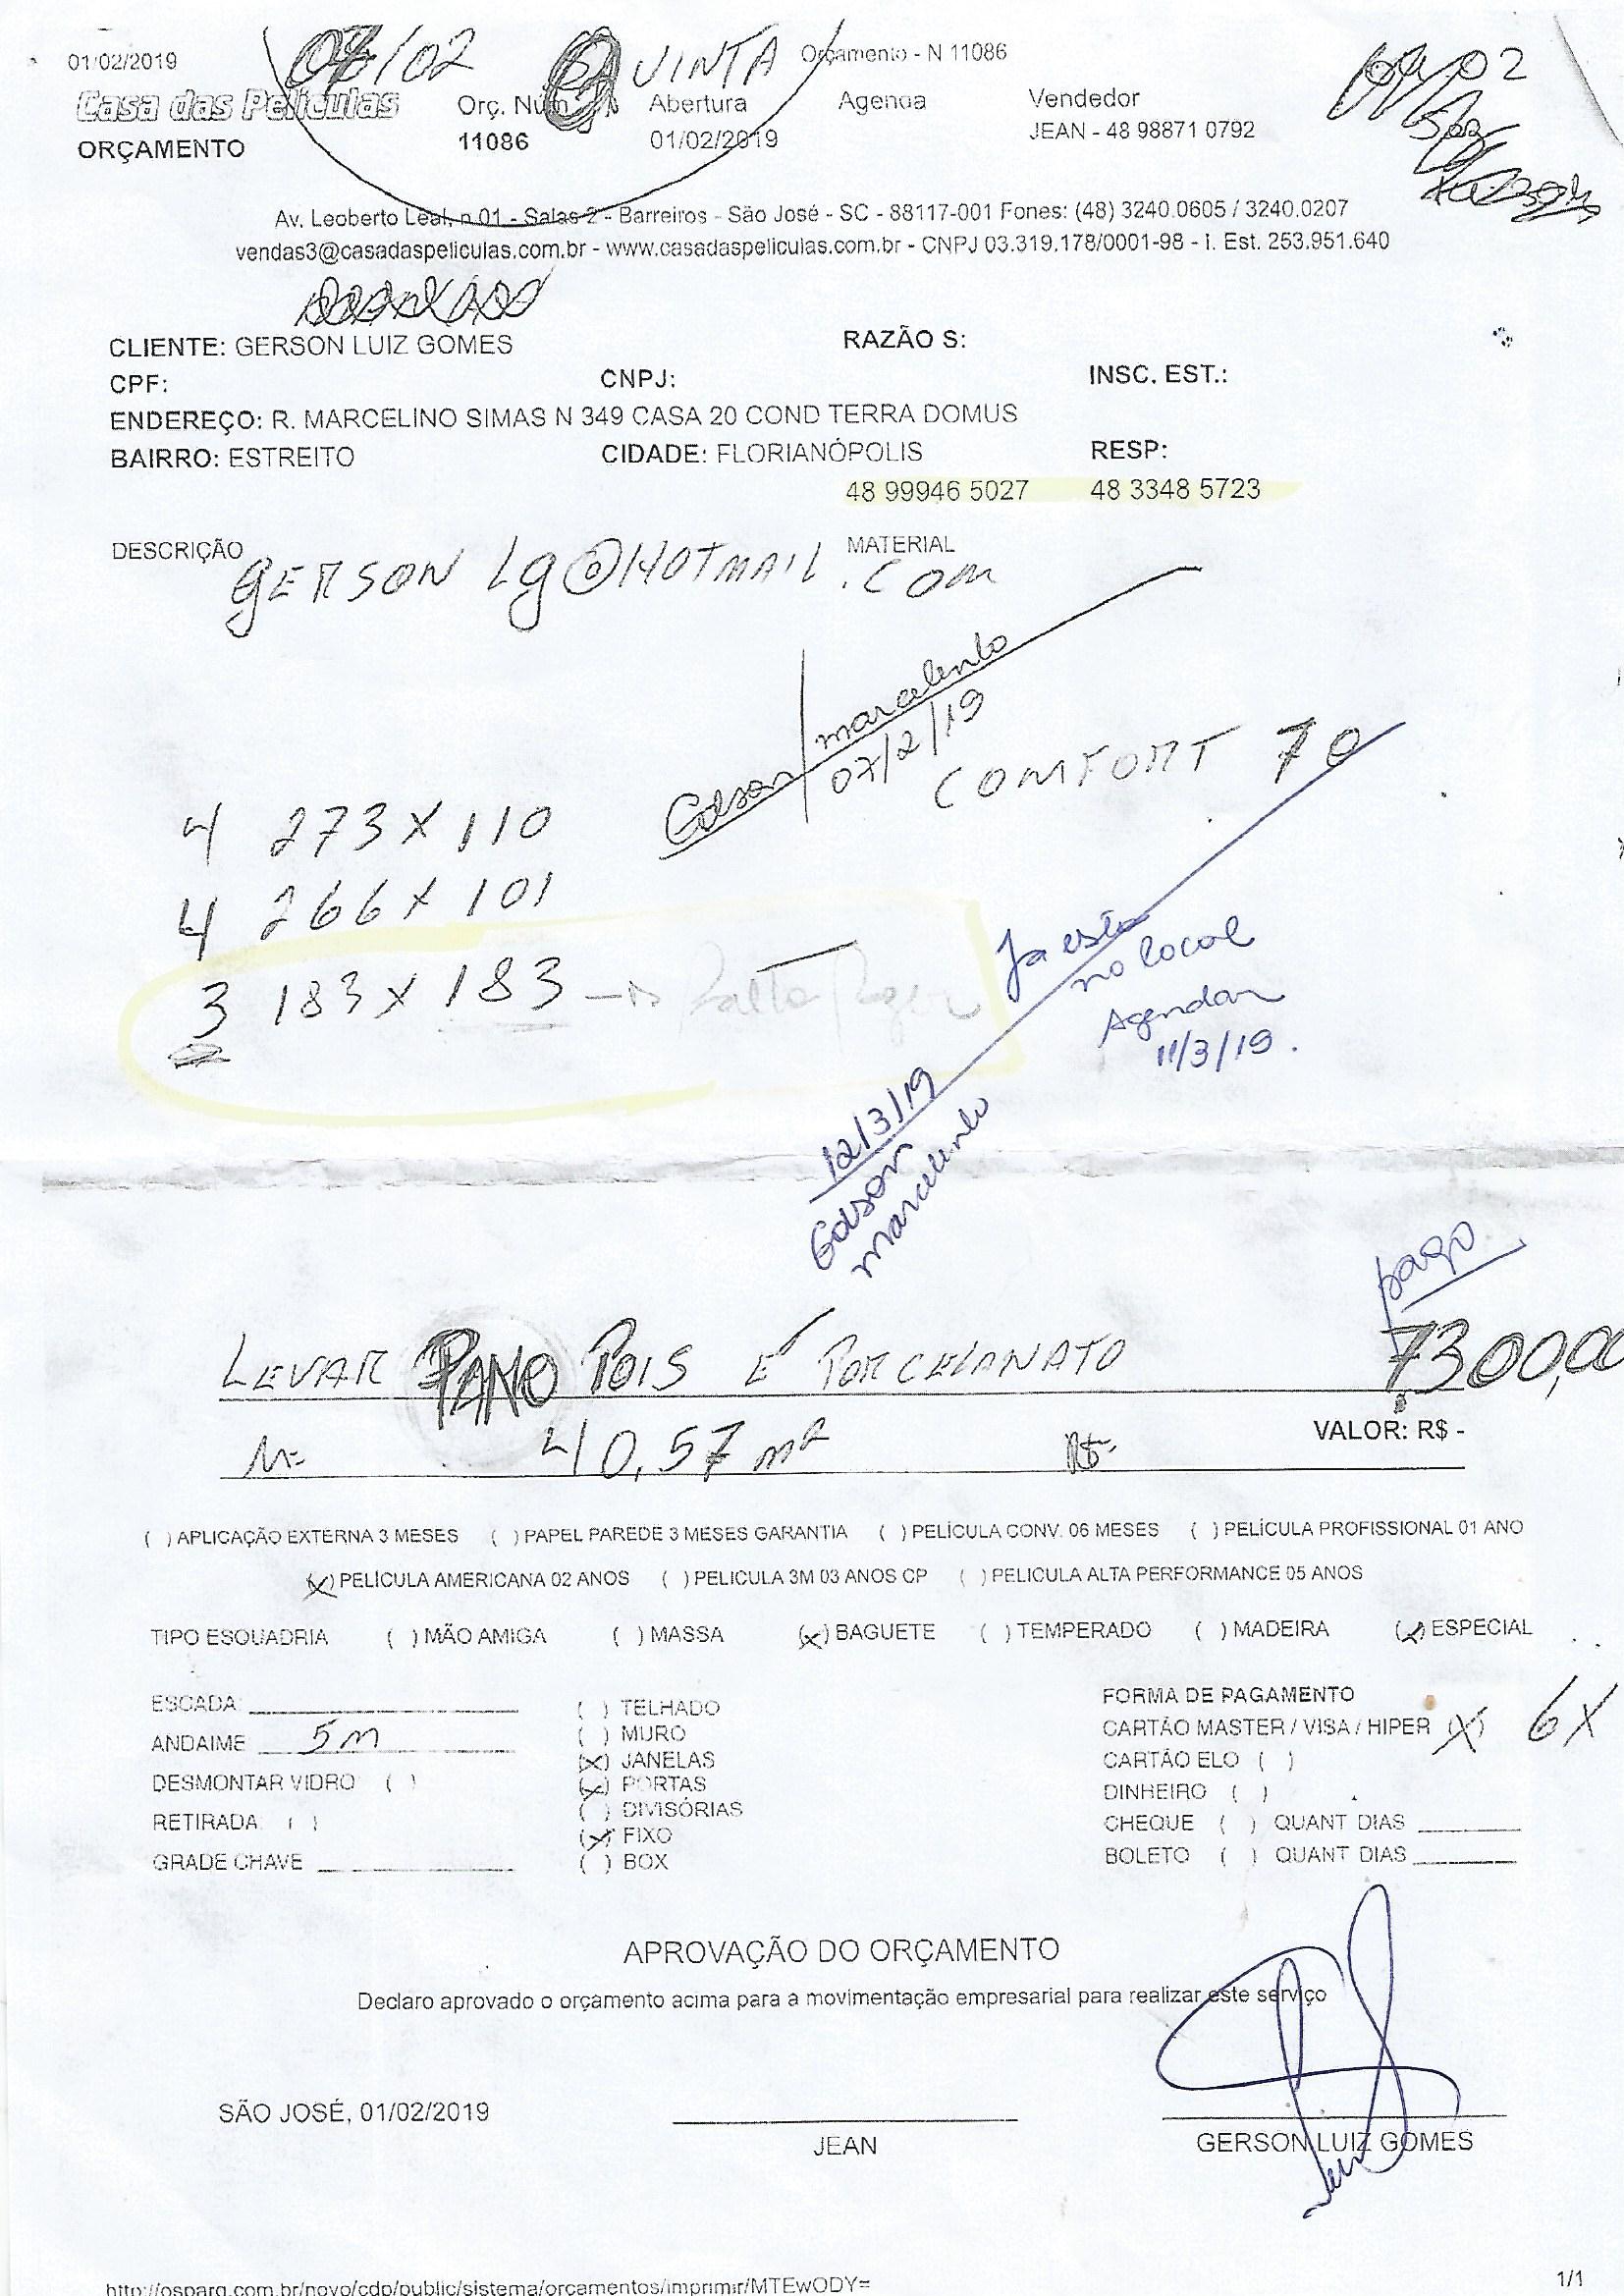 01/02/2019 07/02 QUINTA Orçamento - N 11086
Casa das Películas Orç. Núm. Abertura Agenda Vendedor
ORÇAMENTO 11086 01/02/2019 JEAN - 48 98871 0792
Av. Leoberto Leal, n 01 - Salas 2 - Barreiros - São José - SC - 88117-001 Fones: (48) 3240.0605 / 3240.0207
vendas3@casadaspeliculas.com.br - www.casadaspeliculas.com.br - CNPJ 03.319.178/0001-98 - I. Est. 253.951.640
CLIENTE: GERSON LUIZ GOMES RAZÃO S:
CPF: CNPJ: INSC. EST.:
ENDEREÇO: R. MARCELINO SIMAS N 349 CASA 20 COND TERRA DOMUS
BAIRRO: ESTREITO CIDADE: FLORIANÓPOLIS RESP:
48 99946 5027 48 3348 5723
DESCRIÇÃO MATERIAL
GERSON Lg@HOTMAIL.COM
Edson / marcelinho
07/2/19
COMFORT 70
4 273 X 110
4 266 X 101
3 183 X 183
Ja está
no local
Agendar
11/3/19.
12/3/19
Edson
marcelinho
pago
LEVAR PANO POIS É PORCELANATO 7300,00
M= 40,57 m² R$- VALOR: R$ -
( ) APLICAÇÃO EXTERNA 3 MESES ( ) PAPEL PAREDE 3 MESES GARANTIA ( ) PELÍCULA CONV. 06 MESES ( ) PELÍCULA PROFISSIONAL 01 ANO
(X) PELÍCULA AMERICANA 02 ANOS ( ) PELICULA 3M 03 ANOS CP ( ) PELICULA ALTA PERFORMANCE 05 ANOS
TIPO ESQUADRIA ( ) MÃO AMIGA ( ) MASSA (X) BAGUETE ( ) TEMPERADO ( ) MADEIRA (X) ESPECIAL
ESCADA
ANDAIME 5m
DESMONTAR VIDRO ( )
RETIRADA ( )
GRADE CHAVE
( ) TELHADO
( ) MURO
(X) JANELAS
(X) PORTAS
( ) DIVISÓRIAS
(X) FIXO
( ) BOX
FORMA DE PAGAMENTO
CARTÃO MASTER / VISA / HIPER (X) 6X
CARTÃO ELO ( )
DINHEIRO ( )
CHEQUE ( ) QUANT DIAS
BOLETO ( ) QUANT DIAS
APROVAÇÃO DO ORÇAMENTO
Declaro aprovado o orçamento acima para a movimentação empresarial para realizar este serviço
SÃO JOSÉ, 01/02/2019
JEAN GERSON LUIZ GOMES
http://osparq.com.br/novo/cdp/public/sistema/orcamentos/imprimir/MTEwODY= 1/1